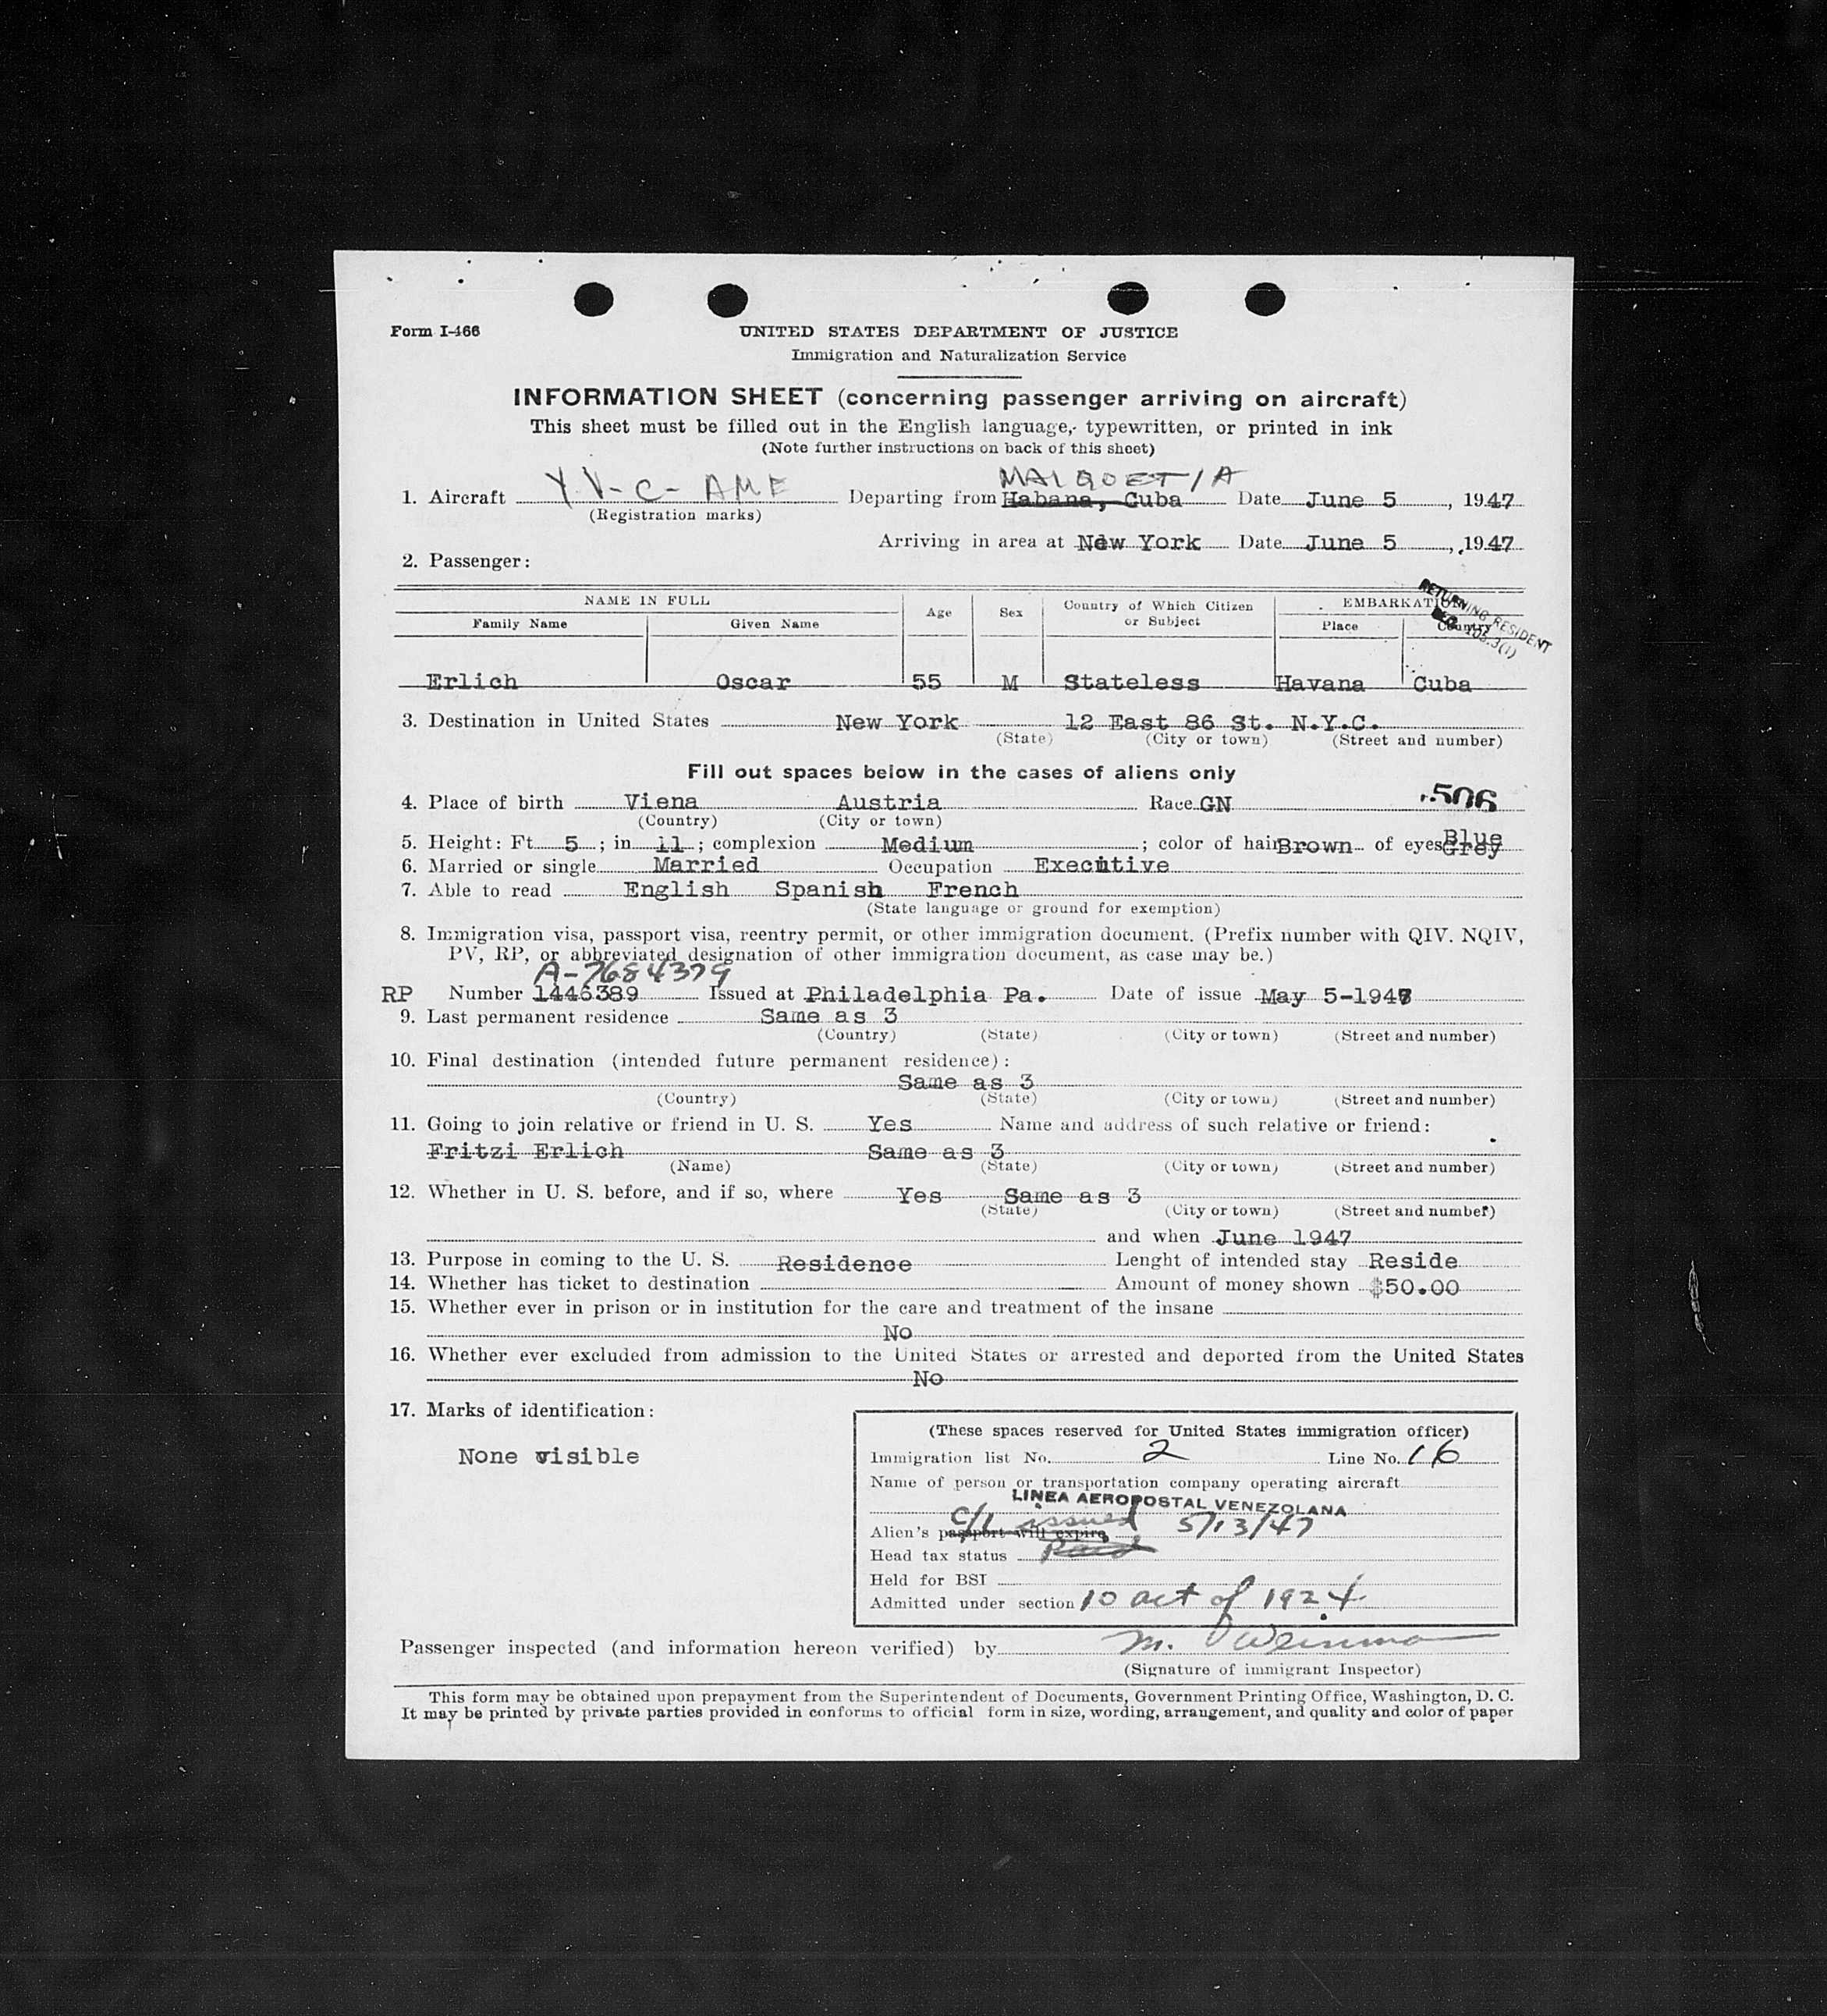 Form I-466
UNITED STATES DEPARTMENT OF JUSTICE
Immigration and Naturalization Service
INFORMATION SHEET (concerning passenger arriving on aircraft)
This sheet must be filled out in the English language, typewritten, or printed in ink
(Note further instructions on back of this sheet)
MAIQOETIA
1. Aircraft YV-C-AME Departing from Habana, Cuba Date June 5, 1947
(Registration marks)
Arriving in area at New York Date June 5, 1947
2. Passenger:
RETURNING RESIDENT
NAME IN FULL Age Sex Country of Which Citizen or Subject EMBARKATION
Family Name Given Name Place Country
Erlich Oscar 55 M Stateless Havana Cuba
3. Destination in United States New York 12 East 86 St. N.Y.C.
(State) (City or town) (Street and number)
Fill out spaces below in the cases of aliens only
4. Place of birth Viena Austria Race GN 506
(Country) (City or town)
5. Height: Ft. 5; in 11; complexion Medium; color of hair Brown of eyes Blue Grey
6. Married or single Married Occupation Executive
7. Able to read English Spanish French
(State language or ground for exemption)
8. Immigration visa, passport visa, reentry permit, or other immigration document. (Prefix number with QIV. NQIV,
PV, RP, or abbreviated designation of other immigration document, as case may be.)
A-7684379
RP Number 1446389 Issued at Philadelphia Pa. Date of issue May 5-194
9. Last permanent residence Same as 3
(Country) (State) (City or town) (Street and number)
10. Final destination (intended future permanent residence):
Same as 3
(Country) (State) (City or town) (Street and number)
11. Going to join relative or friend in U. S. Yes Name and address of such relative or friend:
Fritzi Erlich Same as 3
(Name) (State) (City or town) (Street and number)
12. Whether in U. S. before, and if so, where Yes Same as 3
(State) (City or town) (Street and number)
and when June 1947
13. Purpose in coming to the U. S. Residence Lenght of intended stay Reside
14. Whether has ticket to destination Amount of money shown $50.00
15. Whether ever in prison or in institution for the care and treatment of the insane
No
16. Whether ever excluded from admission to the United States or arrested and deported from the United States
No
17. Marks of identification:
None visible
(These spaces reserved for United States immigration officer)
Immigration list No. 2 Line No. 16
Name of person or transportation company operating aircraft
LINEA AEROPOSTAL VENEZOLANA
C/I issued 5/13/47
Alien's passport will expire
Head tax status Paid
Held for BSI
Admitted under section 10 act of 1924
Passenger inspected (and information hereon verified) by M. Weinman
(Signature of immigrant Inspector)
This form may be obtained upon prepayment from the Superintendent of Documents, Government Printing Office, Washington, D. C.
It may be printed by private parties provided in conforms to official form in size, wording, arrangement, and quality and color of paper